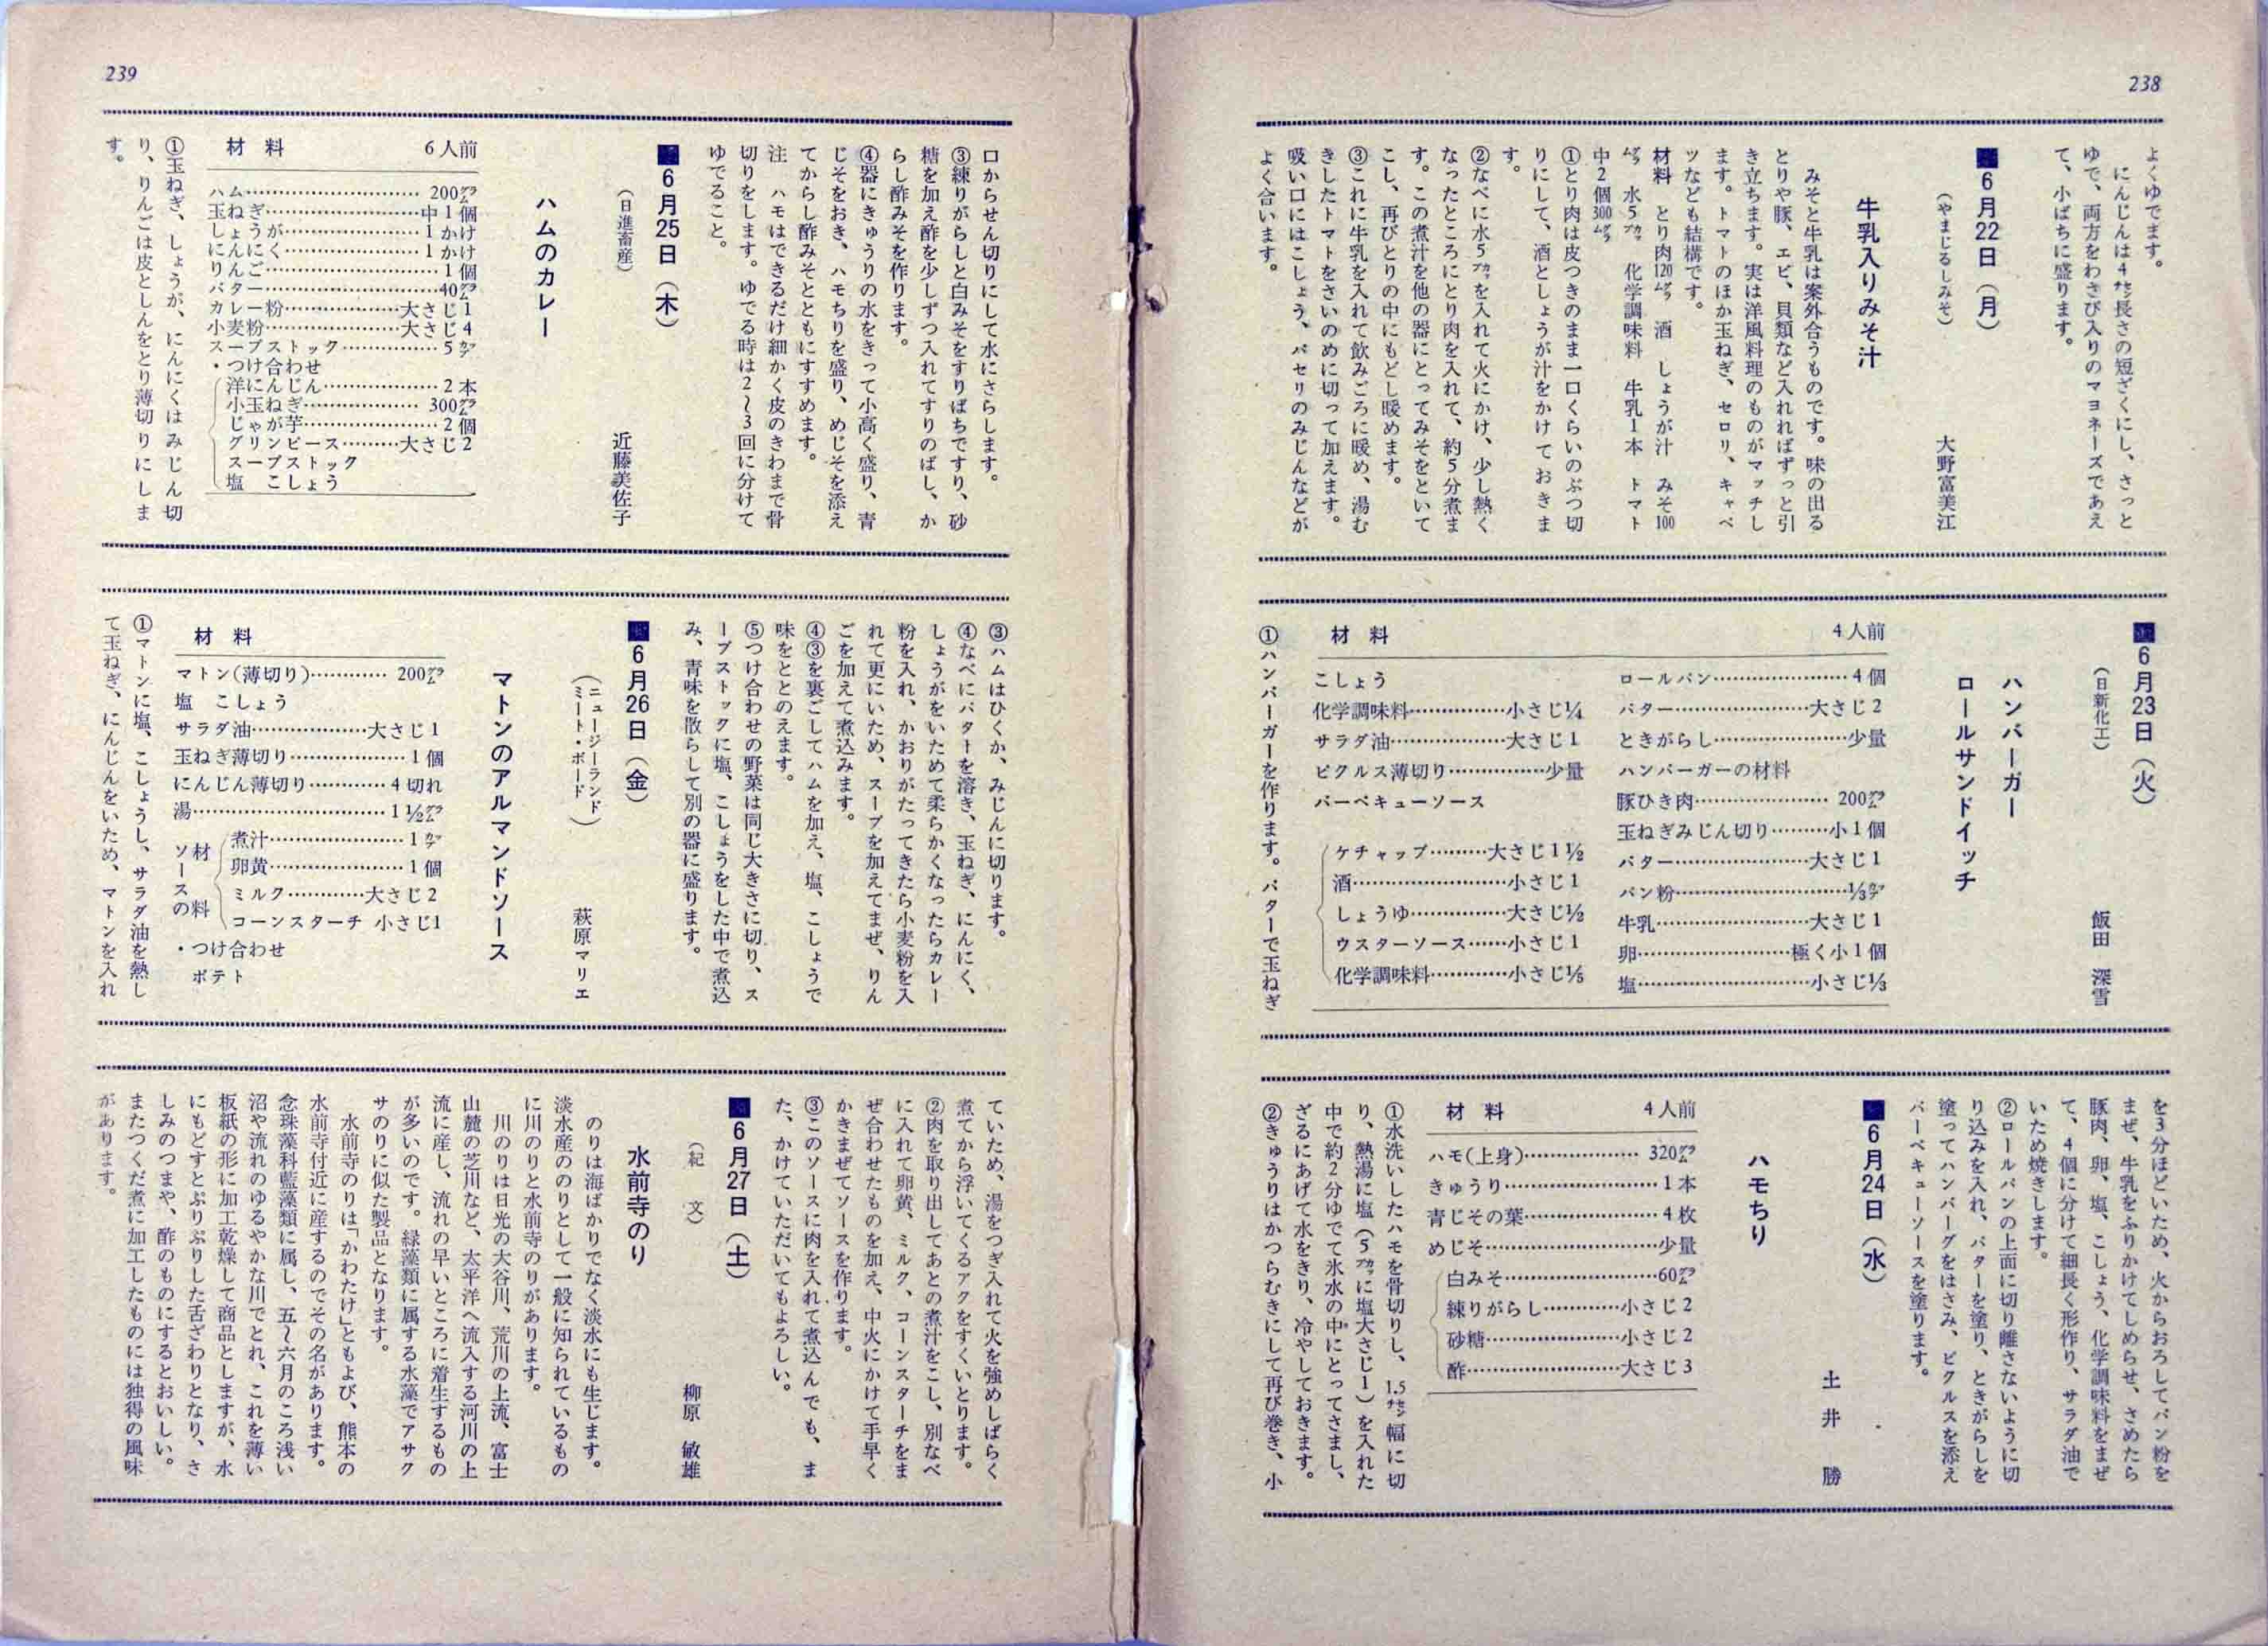 238
よくゆでます。
にんじんは4㌢長さの短ざくにし、さっと
ゆで、両方をわさび入りのマヨネーズであえ
て、小ばちに盛ります。
■6月22日（月）
（やまじるしみそ）　大野富美江
牛乳入りみそ汁
みそと牛乳は案外合うものです。味の出る
とりや豚、エビ、貝類など入れればずっと引
き立ちます。実は洋風料理のものがマッチし
ます。トマトのほか玉ねぎ、セロリ、キャベ
ツなども結構です。
材料　とり肉120㌘　酒　しょうが汁　みそ100
㌘　水5㌍　化学調味料　牛乳1本　トマト
中2個300㌘
①とり肉は皮つきのまま一口くらいのぶつ切
りにして、酒としょうが汁をかけておきま
す。
②なべに水5㌍を入れて火にかけ、少し熱く
なったところにとり肉を入れて、約5分煮ま
す。この煮汁を他の器にとってみそをといて
こし、再びとりの中にもどし暖めます。
③これに牛乳を入れて飲みごろに暖め、湯む
きしたトマトをさいのめに切って加えます。
吸い口にはこしょう、パセリのみじんなどが
よく合います。
■6月23日（火）
（日新化工）　飯田　深雪
ハンバーガー
ロールサンドイッチ
材料　4人前
ロールパン…………………4個
バター…………………大さじ2
ときがらし…………………少量
ハンバーガーの材料
豚ひき肉………………… 200㌘
玉ねぎみじん切り………小1個
バター…………………大さじ1
パン粉…………………⅓㌍
牛乳…………………大さじ1
卵…………………極く小1個
塩…………………小さじ⅓
こしょう
化学調味料……………小さじ¼
サラダ油………………大さじ1
ピクルス薄切り……………少量
バーベキューソース
ケチャップ………大さじ1½
酒…………………小さじ1
しょうゆ……………大さじ½
ウスターソース……小さじ1
化学調味料…………小さじ⅕
①ハンバーガーを作ります。バターで玉ねぎ
を3分ほどいため、火からおろしてパン粉を
まぜ、牛乳をふりかけてしめらせ、さめたら
豚肉、卵、塩、こしょう、化学調味料をまぜ
て、4個に分けて細長く形作り、サラダ油で
いため焼きします。
②ロールパンの上面に切り離さないように切
り込みを入れ、バターを塗り、ときがらしを
塗ってハンバーグをはさみ、ピクルスを添え
バーベキューソースを塗ります。
■6月24日（水）
土井　勝
ハモちり
材料　4人前
ハモ(上身)……………… 320㌘
きゅうり…………………1本
青じその葉…………………4枚
めじそ…………………少量
白みそ…………………60㌘
練りがらし…………小さじ2
砂糖…………………小さじ2
酢…………………大さじ3
①水洗いしたハモを骨切りし、1.5㌢幅に切
り、熱湯に塩（5㌍に塩大さじ1）を入れた
中で約2分ゆでて氷水の中にとってさまし、
ざるにあげて水をきり、冷やしておきます。
②きゅうりはかつらむきにして再び巻き、小
239
口からせん切りにして水にさらします。
③練りがらしと白みそをすりばちですり、砂
糖を加え酢を少しずつ入れてすりのばし、か
らし酢みそを作ります。
④器にきゅうりの水をきって小高く盛り、青
じそをおき、ハモちりを盛り、めじそを添え
てからし酢みそとともにすすめます。
注　ハモはできるだけ細かく皮のきわまで骨
切りをします。ゆでる時は2〜3回に分けて
ゆでること。
■6月25日（木）
（日進畜産）　近藤美佐子
ハムのカレー
材料　6人前
ハム………………… 200㌘
玉ねぎ…………………中1個
しょうが…………………1かけ
にんにく…………………1かけ
りんご…………………1個
バター…………………40㌘
カレー粉……………大さじ1
小麦粉………………大さじ4
スープストック……………5㌍
・つけ合わせ
洋にんじん………………2本
小玉ねぎ……………… 300㌘
じゃが芋…………………2個
グリンピース………大さじ2
スープストック
塩　こしょう
①玉ねぎ、しょうが、にんにくはみじん切
り、りんごは皮としんをとり薄切りにしま
す。
③ハムはひくか、みじんに切ります。
④なべにバターを溶き、玉ねぎ、にんにく、
しょうがをいためて柔らかくなったらカレー
粉を入れ、かおりがたってきたら小麦粉を入
れて更にいため、スープを加えてまぜ、りん
ごを加えて煮込みます。
④③を裏ごしてハムを加え、塩、こしょうで
味をととのえます。
⑤つけ合わせの野菜は同じ大きさに切り、ス
ープストックに塩、こしょうをした中で煮込
み、青味を散らして別の器に盛ります。
■6月26日（金）
（ニュージーランド
ミート・ボード）　萩原マリエ
マトンのアルマンドソース
材料
マトン(薄切り)………… 200㌘
塩　こしょう
サラダ油………………大さじ1
玉ねぎ薄切り………………1個
にんじん薄切り…………4切れ
湯…………………1½㌍
ソースの材料
煮汁…………………1㌍
卵黄…………………1個
ミルク…………大さじ2
コーンスターチ 小さじ1
・つけ合わせ
ポテト
①マトンに塩、こしょうし、サラダ油を熱し
て玉ねぎ、にんじんをいため、マトンを入れ
ていため、湯をつぎ入れて火を強めしばらく
煮てから浮いてくるアクをすくいとります。
②肉を取り出してあとの煮汁をこし、別なべ
に入れて卵黄、ミルク、コーンスターチをま
ぜ合わせたものを加え、中火にかけて手早く
かきまぜてソースを作ります。
③このソースに肉を入れて煮込んでも、ま
た、かけていただいてもよろしい。
■6月27日（土）
（紀　文）　柳原　敏雄
水前寺のり
のりは海ばかりでなく淡水にも生じます。
淡水産ののりとして一般に知られているもの
に川のりと水前寺のりがあります。
川のりは日光の大谷川、荒川の上流、富士
山麓の芝川など、太平洋へ流入する河川の上
流に産し、流れの早いところに着生するもの
が多いのです。緑藻類に属する水藻でアサク
サのりに似た製品となります。
水前寺のりは「かわたけ」ともよび、熊本の
水前寺付近に産するのでその名があります。
念珠藻科藍藻類に属し、五〜六月のころ浅い
沼や流れのゆるやかな川でとれ、これを薄い
板紙の形に加工乾燥して商品としますが、水
にもどすとぷりぷりした舌ざわりとなり、さ
しみのつまや、酢のものにするとおいしい。
またつくだ煮に加工したものには独得の風味
があります。